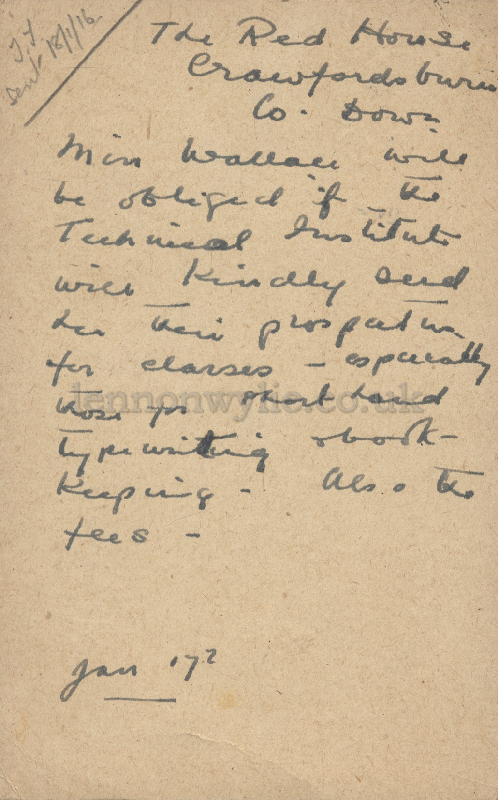 sent 18/1/16
The Red House
Crawfordsburn
Co. Down
Miss Wallace will
be obliged if the
Technical Institute
will kindly send
her their prospectus
for classes - especially
those for shorthand
typewriting & book-
keeping - Also the
fees -
Jan 17th
lennonwylie.co.uk